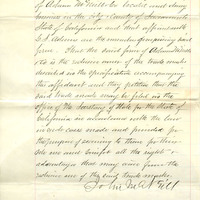 of Adams McNeill & Co located and doing
business in the City & County of Sacramento
State of California and that affiant with
are the members composing said
firm. That the said firm of Adams McNeill
& Co is the exclusive owner of the trade mark
described in the specification accompanying
this affidavit and they petition that the
said trade mark may be filed in the
office of the Secretary of State for the State of
California in accordance with the law
in such cases made and provided for
the purpose of securing to them for their
sole use and benefit all the rights &
advantages that may arise from the
exclusive use of the said trade marks.
John McNeill